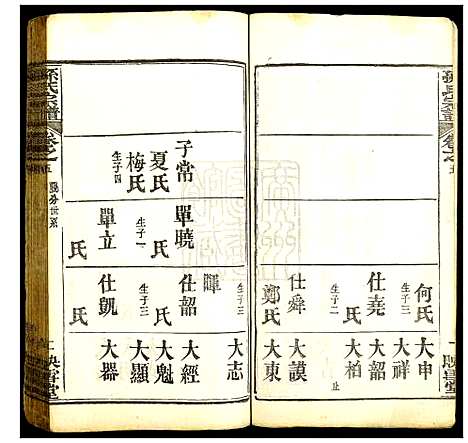 孫氏宗譜
卷之五
映雪堂
何氏
生子三
大申
大祥
仕堯
生子二
大韶
大柏
止
仕舜
大謨
鄭氏
生子一
大東
孫氏宗譜
卷之五
映雪堂
子常
夏氏
梅氏
生子四
單曉
氏
生子一
單立
氏
暉
生子三
大志
仕韶
氏
生子三
大經
大魁
大顯
仕凱
氏
大器